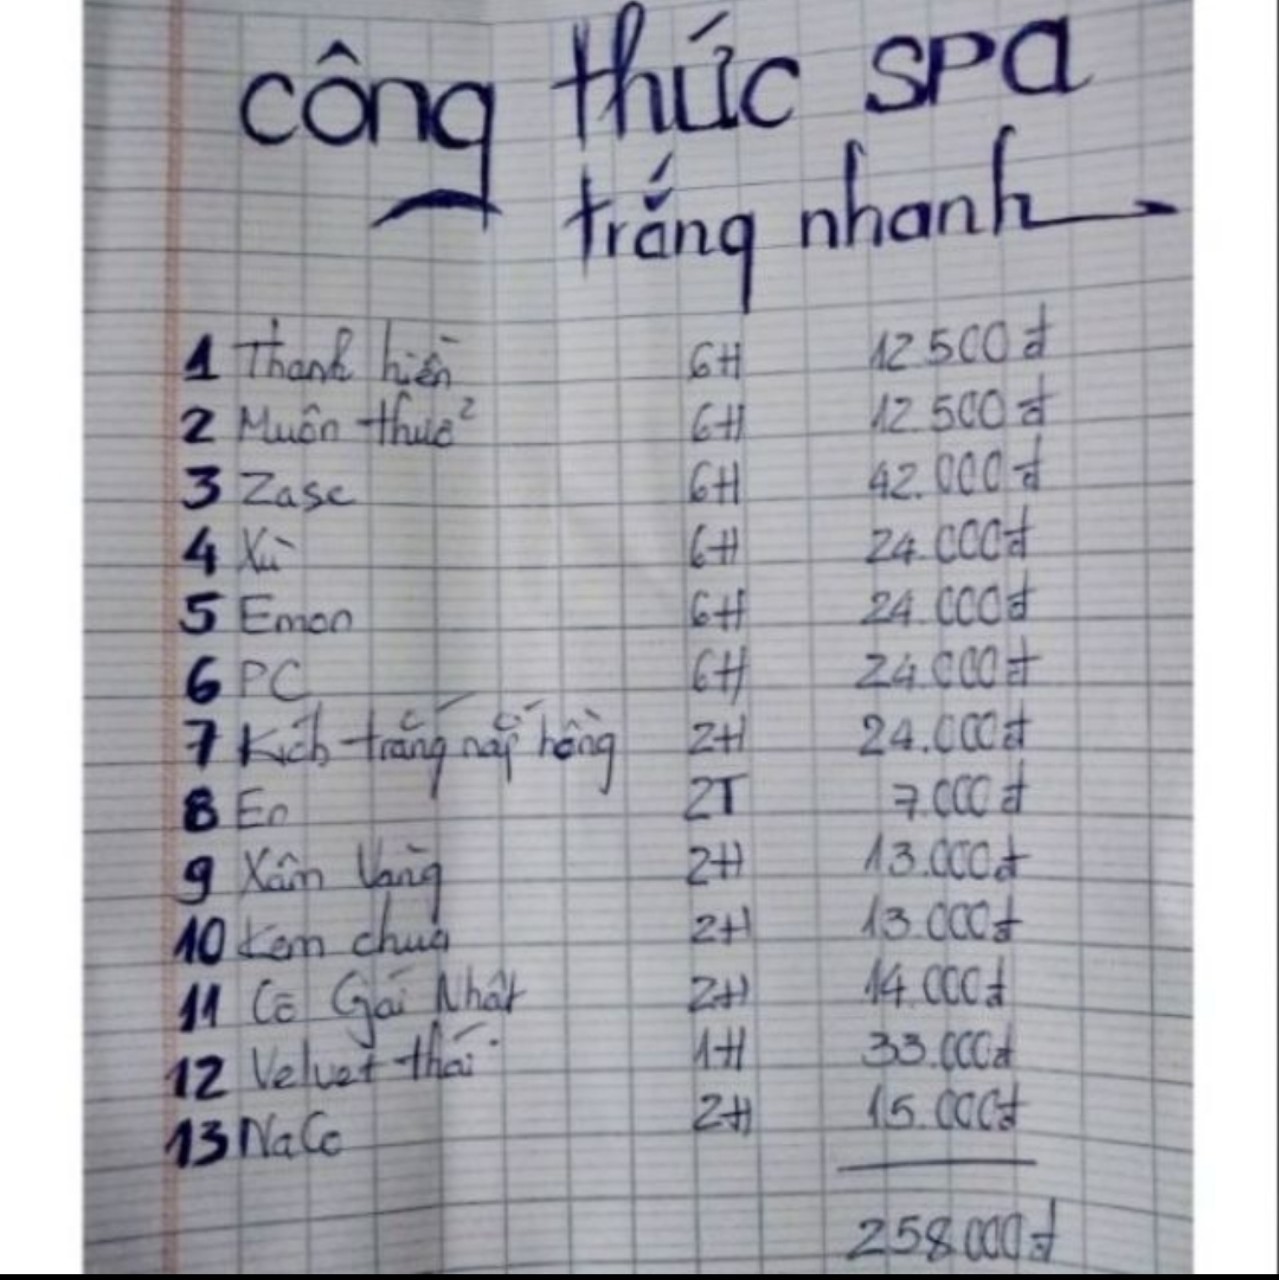 công thức SPa
trắng nhanh
1 Thanh hiền 6H 12.500đ
2 Muôn thuc² 6H 12.500đ
3 Zasc 6H 42.000đ
4 Xù 6H 24.000đ
5 Emon 6H 24.000đ
6 PC 6H 24.000đ
7 Kích trắng nắp hồng 2H 24.000đ
8 En 2T 7.000đ
9 Xâm Vàng 2H 13.000đ
10 Kem chua 2H 13.000đ
11 Cô Gái Nhật 2H 14.000đ
12 Velvet thái 1H 33.000đ
13 NaCo 2H 15.000đ
258.000đ